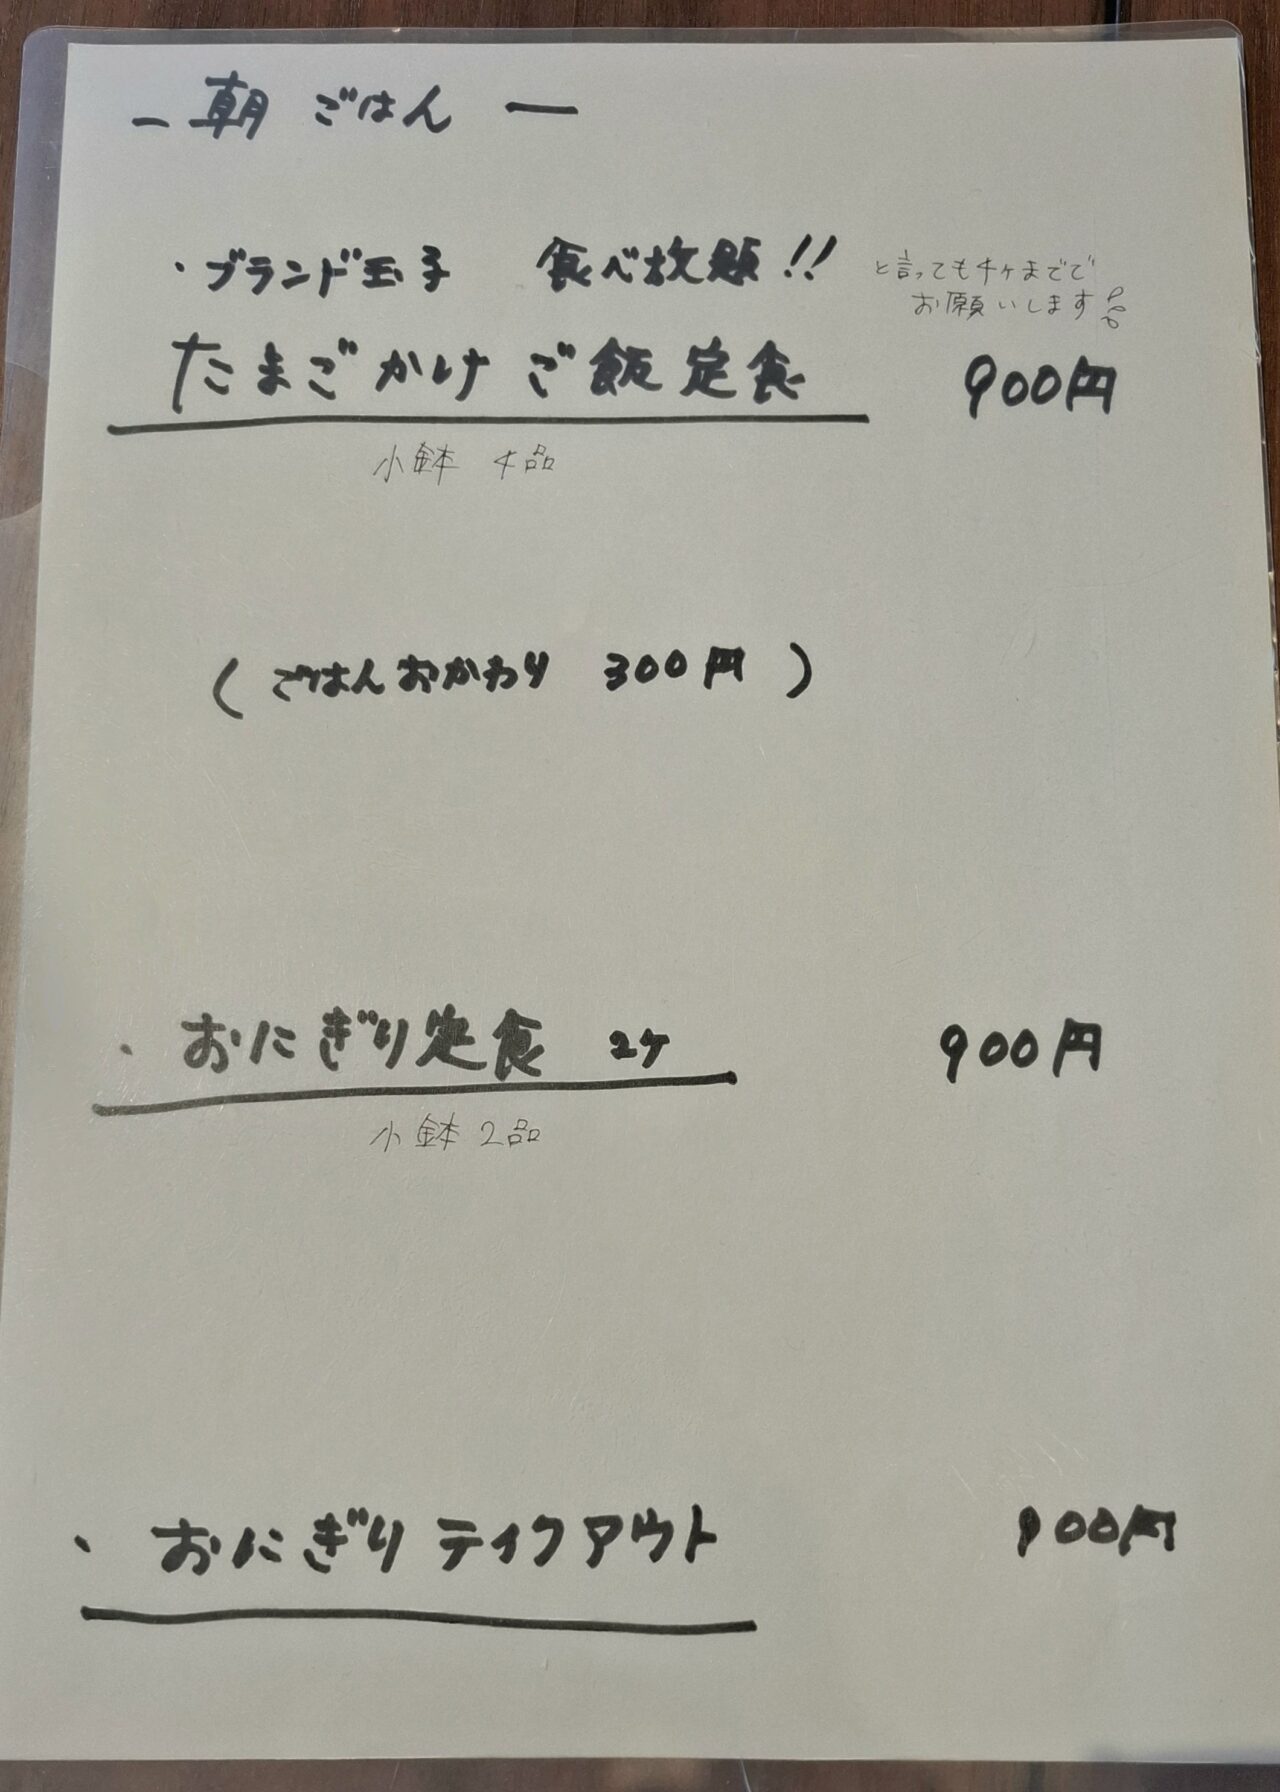 － 朝ごはん －
・ブランド玉子 食べ放題!! と言っても4ヶまでで
お願いします
たまごかけご飯定食 900円
小鉢 4品
(ごはんおかわり 300円)
・おにぎり定食 2ヶ 900円
小鉢 2品
・おにぎりテイクアウト 900円